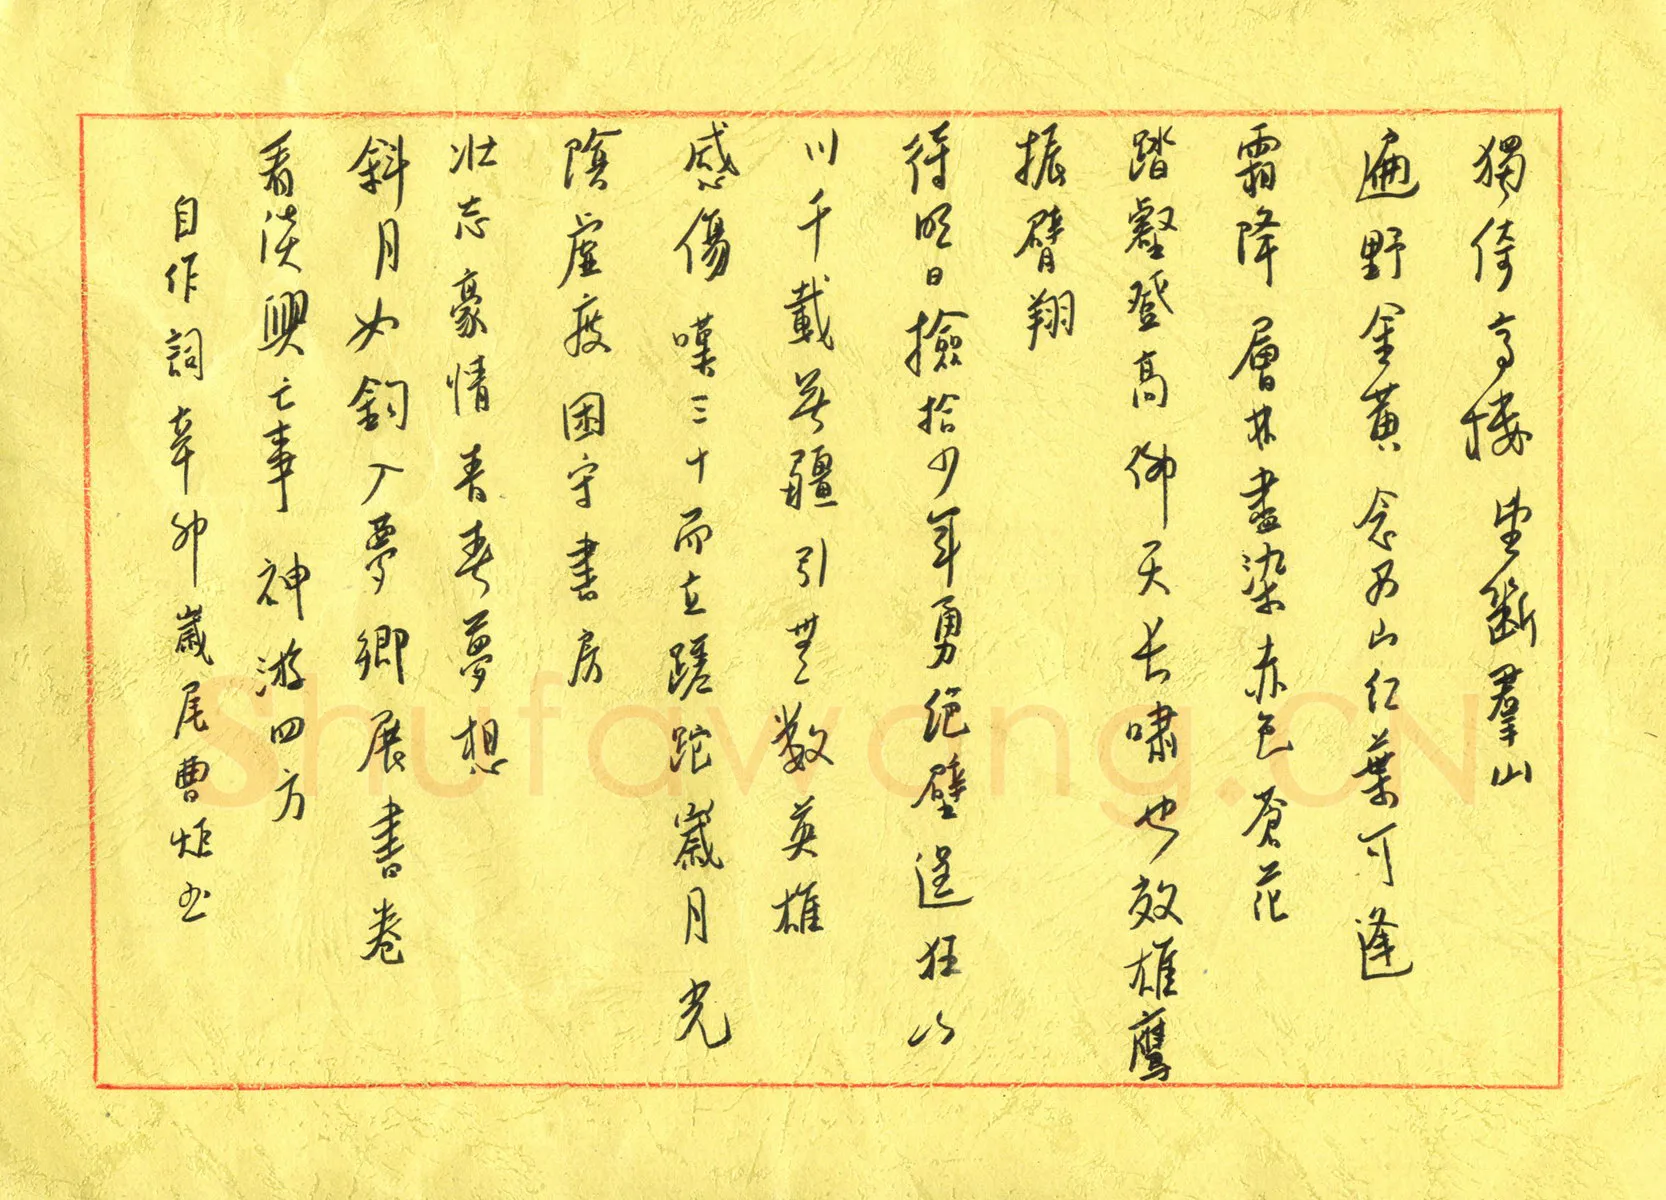 獨倚高樓 望斷羣山
遍野金黃 念西山紅葉可逢
霜降 層林盡染赤色蒼茫
踏壑登高仰天長嘯也效雄鷹
振臂翔
待明日撿拾少年勇絕壁逞狂 山
川千載無疆 引無數英雄
感傷 嘆三十而立蹉跎歲月光
陰虛度 困守書房
壯志豪情青春夢想
斜月如鉤入夢鄉 展書卷
看淡興亡事 神游四方
自作詞辛卯歲尾曹炬書
Shufawang.CN